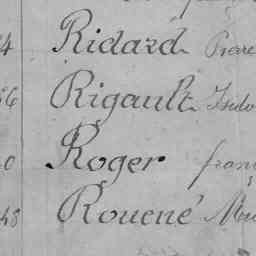 4 Ridard Pierre
6 Rigault Isido
0 Roger franç
48 Rouené